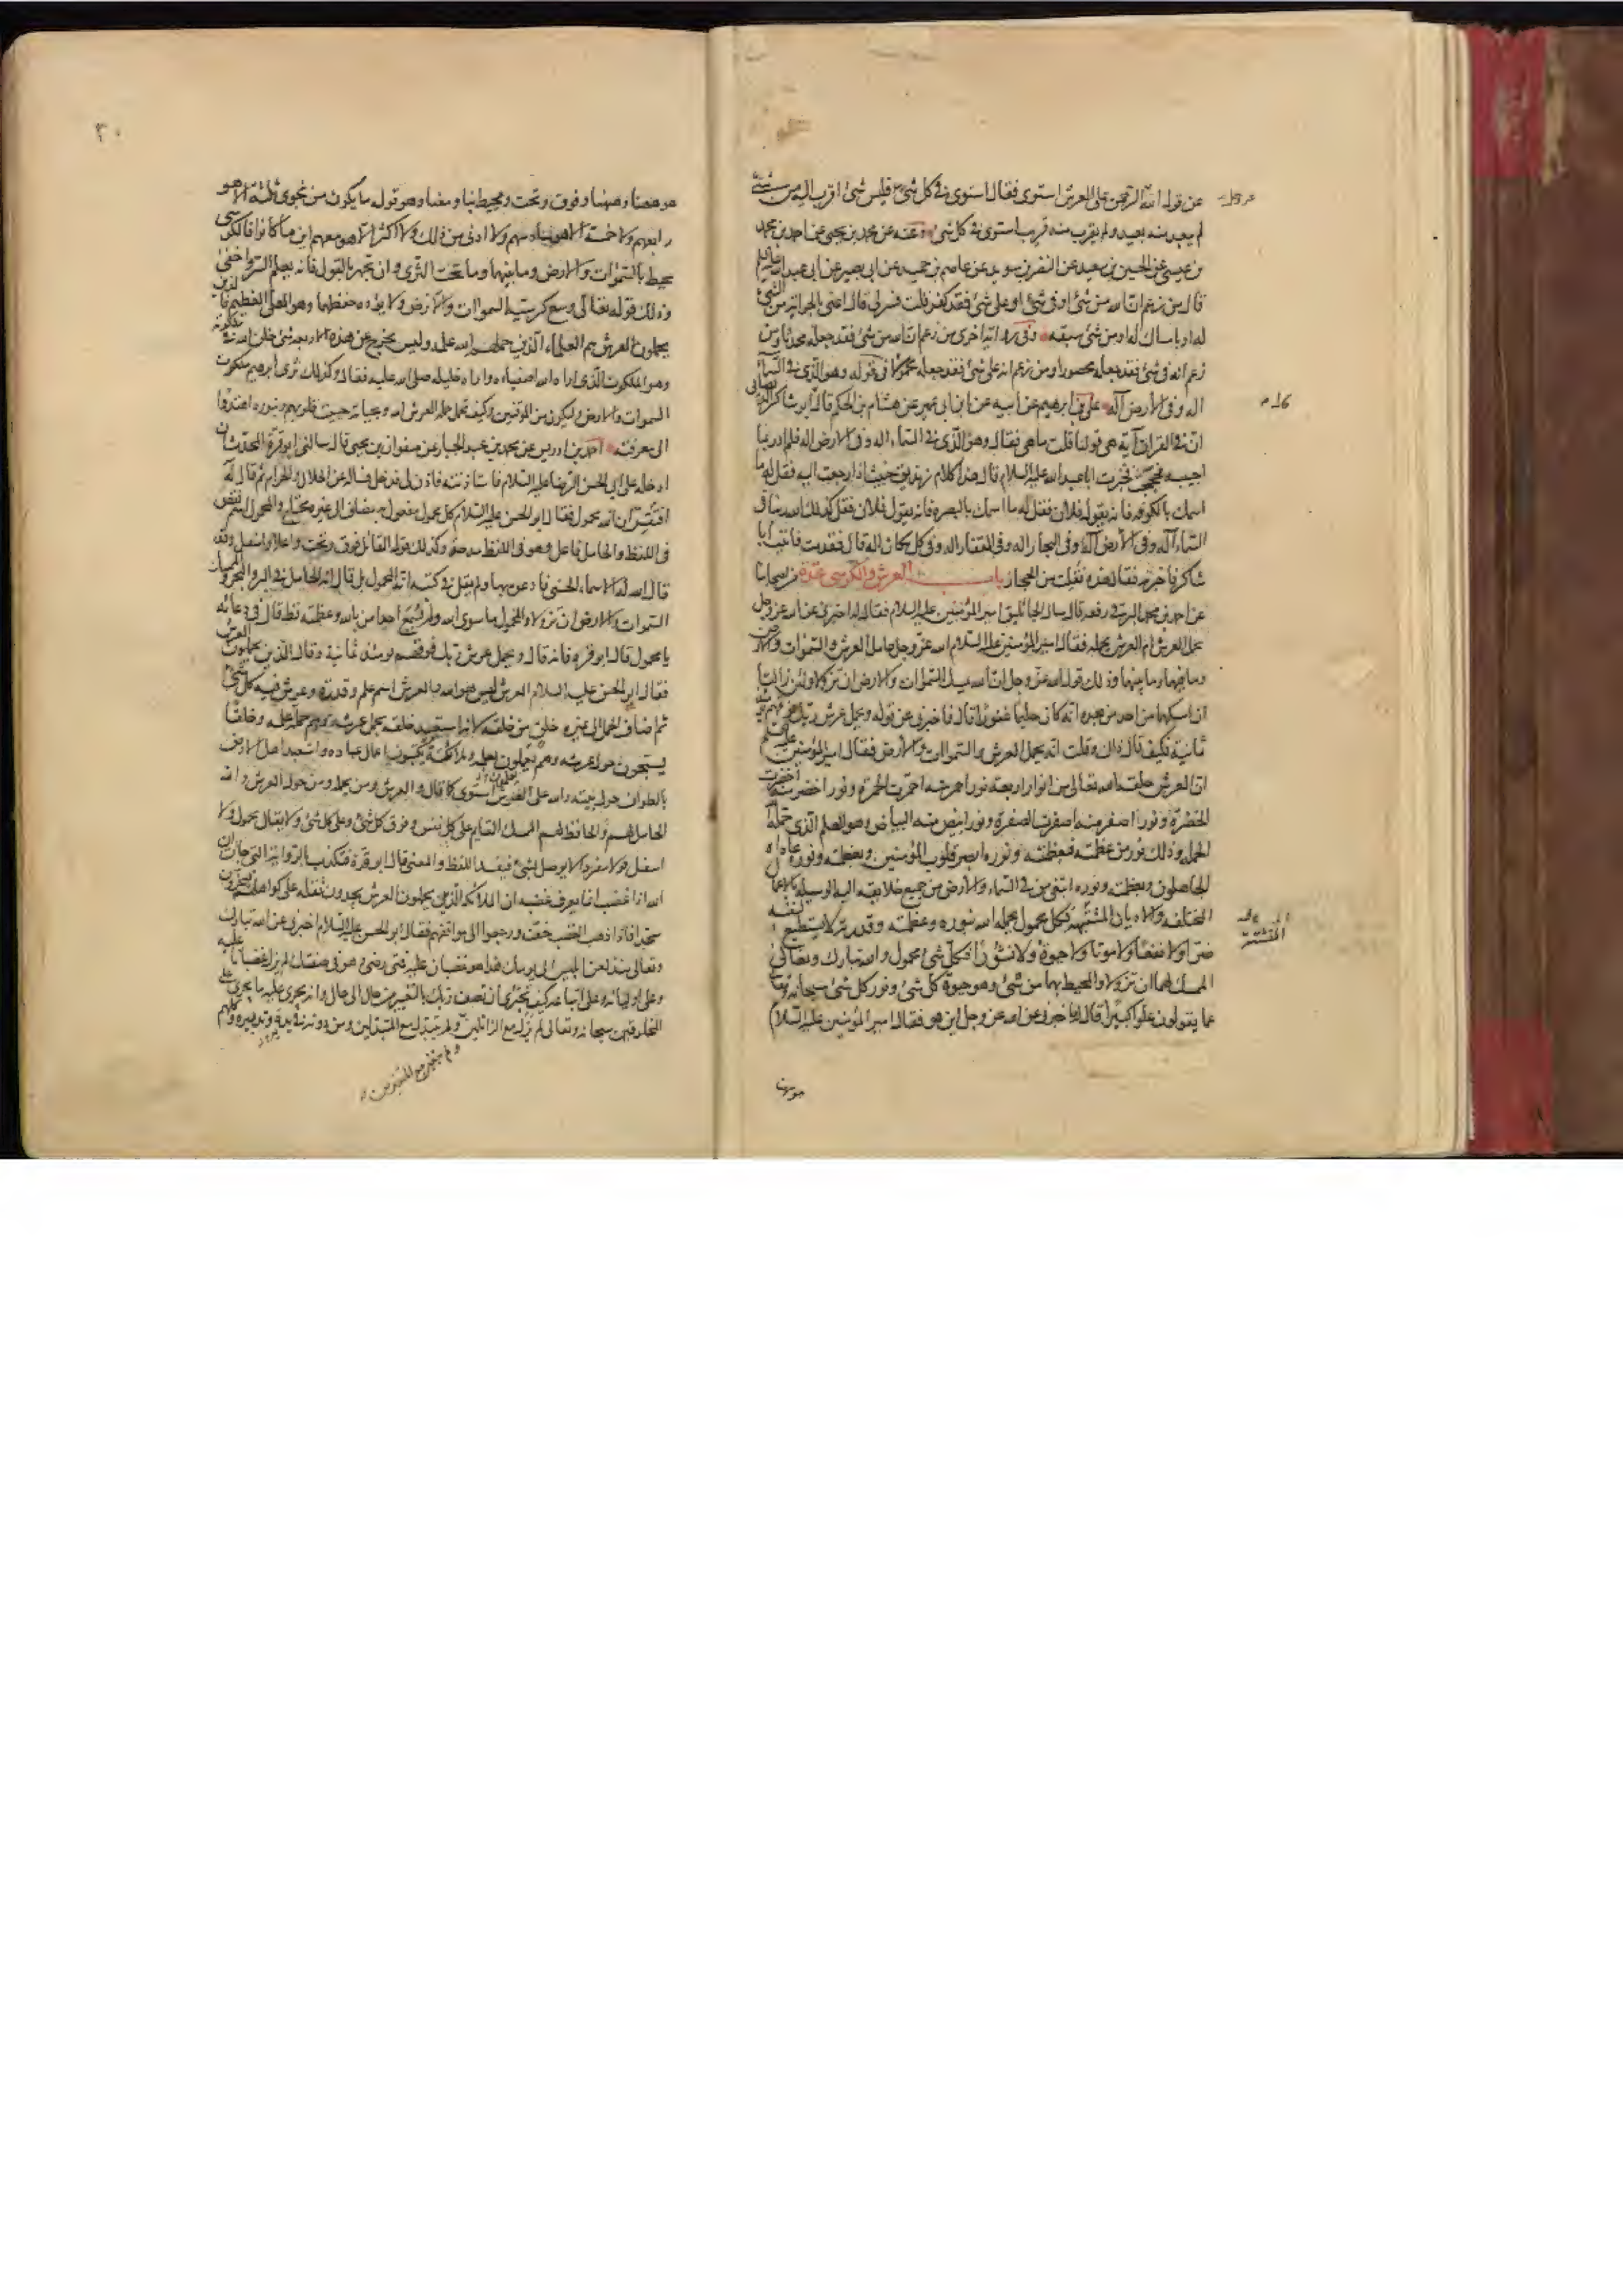 عن قول الله الرحمن على العرش استوى فقال استوى في كل شئ فليس شئ اقرب اليه من شئ
لم يبعد منه بعيد ولم يقرب منه قريب استوى في كل شئ وعنه عن محمد بن يحيى عن احمد بن محمد
بن عيسى عن الحسين بن سعيد عن النضر بن سويد عن عاصم بن حميد عن ابي بصير عن ابي عبد الله عليه السلام
قال من زعم ان الله من شئ او في شئ او على شئ فقد كفر قلت فسر لي قال اعني بالحواية من الشئ
له او بامساك له او من شئ سبقه وفي رواية اخرى من زعم ان الله من شئ فقد جعله محدثا ومن
زعم انه في شئ فقد جعله محصورا ومن زعم انه على شئ فقد جعله محمولا في قوله وهو الذي في السماء
اله وفي الارض اله علي بن ابرهيم عن ابيه عن ابن ابي عمير عن هشام بن الحكم قال ابو شاكر الديصاني
ان في القران آية هي قولنا قلت ما هي فقال وهو الذي في السماء اله وفي الارض اله فلم ادر بما
اجيبه فحججت فخبرت ابا عبد الله عليه السلام قال هذا كلام زنديق خبيث اذا رجعت اليه فقل له ما
اسمك بالكوفه فانه يقول فلان فقل له ما اسمك بالبصرة فانه يقول فلان فقل كذلك الله ربنا في
السماء اله وفي الارض اله وفي البحار اله وفي القفار اله وفي كل مكان اله قال فقدمت فاتيت ابا
شاكر فاخبرته فقال هذه نقلت من الحجاز باب العرش والكرسي عدة من اصحابنا
عن احمد بن محمد البرقي رفعه قال سال الجاثليق امير المؤمنين عليه السلام فقال له اخبرني عن الله عز وجل
يحمل العرش ام العرش يحمله فقال امير المؤمنين عليه السلام الله عز وجل حامل العرش والسموات والارض
وما فيهما وما بينهما وذلك قول الله عز وجل ان الله يمسك السموات والارض ان تزولا ولئن زالتا
ان امسكهما من احد من بعده انه كان حليما غفورا قال فاخبرني عن قوله ويحمل عرش ربك فوقهم يومئذ
ثمانية فكيف قال ذلك وقلت انه يحمل العرش والسموات والارض فقال امير المؤمنين عليه السلم
ان العرش خلقه الله تعالى من انوار اربعة نور احمر منه احمرت الحمرة ونور اخضر منه اخضرت
الخضرة ونور اصفر منه اصفرت الصفرة ونور ابيض منه البياض وهو العلم الذي حمله الله
الحملة وذلك نور من عظمته فبعظمته ونوره ابصر قلوب المؤمنين وبعظمته ونوره عاداه
الجاهلون وبعظمته ونوره ابتغى من في السماء والارض من جميع خلايقه اليه الوسيلة بالاعمال
المختلفه والاديان المشتبهة فكل محمول يحمله الله بنوره وعظمته وقدرته لا يستطيع لنفسه
ضرا ولا نفعا ولا موتا ولا حيوة ولا نشورا فكل شئ محمول والله تبارك وتعالى
الممسك لهما ان تزولا والمحيط بهما من شئ وهو حيوة كل شئ ونور كل شئ سبحانه وتعالى
عما يقولون علوا كبيرا قال له فاخبرني عن الله عز وجل اين هو فقال امير المؤمنين عليه السلام
هو ههنا
هو ههنا وههنا وفوق وتحت ومحيط بنا ومعنا وهو قوله ما يكون من نجوى ثلثة الا هو
رابعهم ولا خمسة الا هو سادسهم ولا ادنى من ذلك ولا اكثر الا هو معهم اين ما كانوا فالكرسي
محيط بالسموات والارض وما بينهما وما تحت الثرى وان تجهر بالقول فانه يعلم السر واخفى
وذلك قوله تعالى وسع كرسيه السموات والارض ولا يؤده حفظهما وهو العلي العظيم فالذين
يحملون العرش هم العلماء الذين حملهم الله علمه وليس يخرج عن هذه الاربعة شئ خلق الله في ملكوته
وهو الملكوت الذي اراه الله اصفياءه واراه خليله صلى الله عليه فقال وكذلك نرى ابرهيم ملكوت
السموات والارض وليكون من الموقنين وكيف تحمل حملة العرش الله وبحياته حييت قلوبهم وبنوره اهتدوا
الى معرفته احمد بن ادريس عن محمد بن عبد الجبار عن صفوان بن يحيى قال سالني ابو قرة المحدث ان
ادخله على ابي الحسن الرضا عليه السلام فاستاذنته فاذن لي فدخل فساله عن الحلال والحرام ثم قال له
افتقر ان الله محمول فقال ابو الحسن عليه السلام كل محمول مفعول به مضاف الى غيره محتاج والمحمول اسم نقص
في اللفظ والحامل فاعل وهو في اللفظ مدحة وكذلك قول القائل فوق وتحت واعلا واسفل وقد
قال الله له الاسماء الحسنى فادعوه بها ولم يقل في كتبه انه المحمول بل قال انه الحامل في البر والبحر والممسك
السموات والارض ان تزولا والمحمول ما سوى الله ولم يسمع احد امن بالله وعظمته قط قال في دعائه
يا محمول قال ابو قرة فانه قال ويحمل عرش ربك فوقهم يومئذ ثمانية وقال الذين يحملون العرش
فقال ابو الحسن عليه السلام العرش ليس هو الله والعرش اسم علم وقدرة وعرش فيه كل شئ
ثم اضاف الحمل الى غيره خلق من خلقه لانه استعبد خلقه بحمل عرشه وهم حملة علمه وخلقا
يسبحون حول عرشه وهم يعملون بعلمه وملائكة يكتبون اعمال عباده واستعبد اهل الارض
بالطواف حول بيته والله على العرش استوى كما قال والعرش ومن يحمله ومن حول العرش والله
الحامل لهم والحافظ لهم الممسك القايم على كل نفس وفوق كل شئ وعلى كل شئ ولا يقال محمول ولا
اسفل قولا مفردا لا يوصل بشئ فيفسد اللفظ والمعنى قال ابو قرة فتكذب بالرواية التي جاءت ان
الله اذا غضب انما يعرف غضبه ان الملائكه الذين يحملون العرش يجدون ثقله على كواهلهم فيخرون
سجدا فاذا ذهب الغضب خف ورجعوا الى مواقفهم فقال ابو الحسن عليه السلام اخبرني عن الله تبارك
وتعالى منذ لعن ابليس الى يومك هذا هو غضبان عليه فمتى رضي وهو في صفتك لم يزل غضبانا عليه
وعلى اوليائه وعلى اتباعه كيف تجترئ ان تصف ربك بالتغيير من حال الى حال وانه يجري عليه ما يجري على
المخلوقين سبحانه وتعالى لم يزل مع الزائلين ولم يتبدل مع المتبدلين ومن دونه في يده وتدبيره وكلهم
ولم يتغير مع المتغيرين